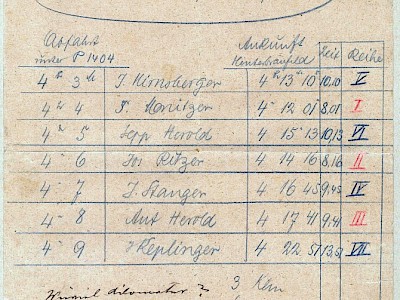 Abfahrt Ankunft Zeit Reihe
unter P 1404
4 h 3 J. Hirnsberger 4 h 13 m 10 s 10,10 V
4 4 Monitzer 4 12 01 8,01 I
4 5 Sepp Herold 4 15 13 10,13 VI
4 6 Jos Ritzer 4 14 16 8,16 II
4 7 J. Stanger 4 16 45 9,45 IV
4 8 Ant Herold 4 17 41 9,41 III
4 9 Keplinger 4 22 51 13,51 VII
Wieviel kilometer? 3 Klm